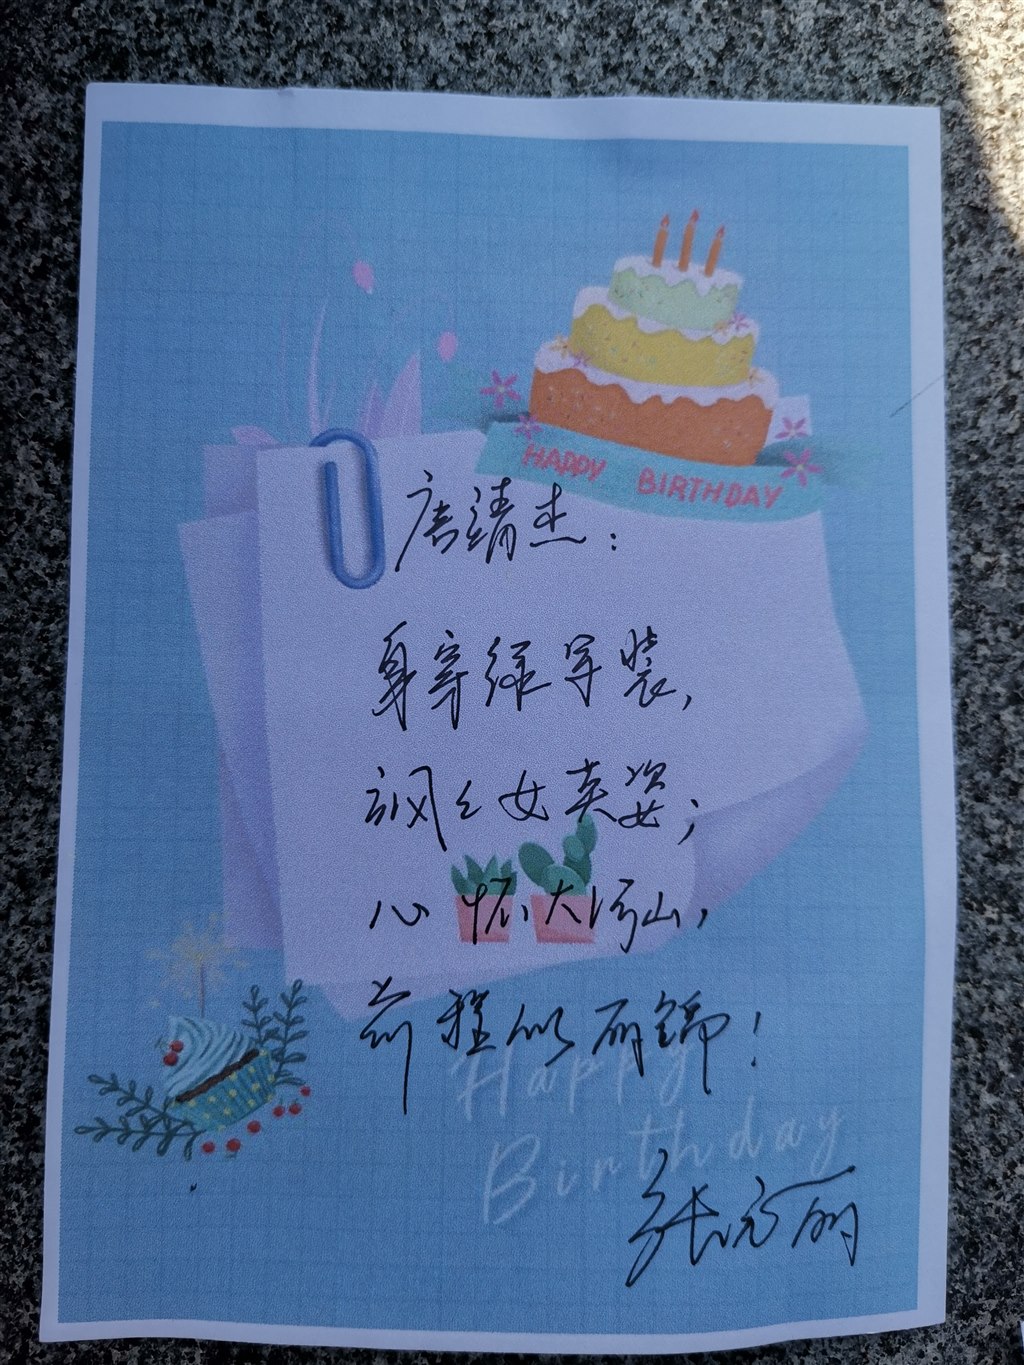 HAPPY BIRTHDAY
唐靖杰：
身穿绿军装，
飒飒女英姿；
心怀大河山，
前程似丽锦！
Happy
Birthday
张